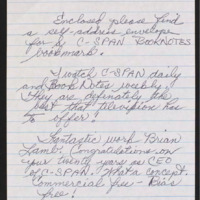 Enclosed please find
a self-address envelope
for a C-SPAN BOOKNOTES
bookmark.
I watch C-SPAN daily
and Book Notes weekly.
They are definitely the
best that television has
to offer!
Fantastic work Brian
Lamb. Congratulations on
your twenty years as CEO
of C-SPAN. What a concept.
Commercial free - Bias
free!